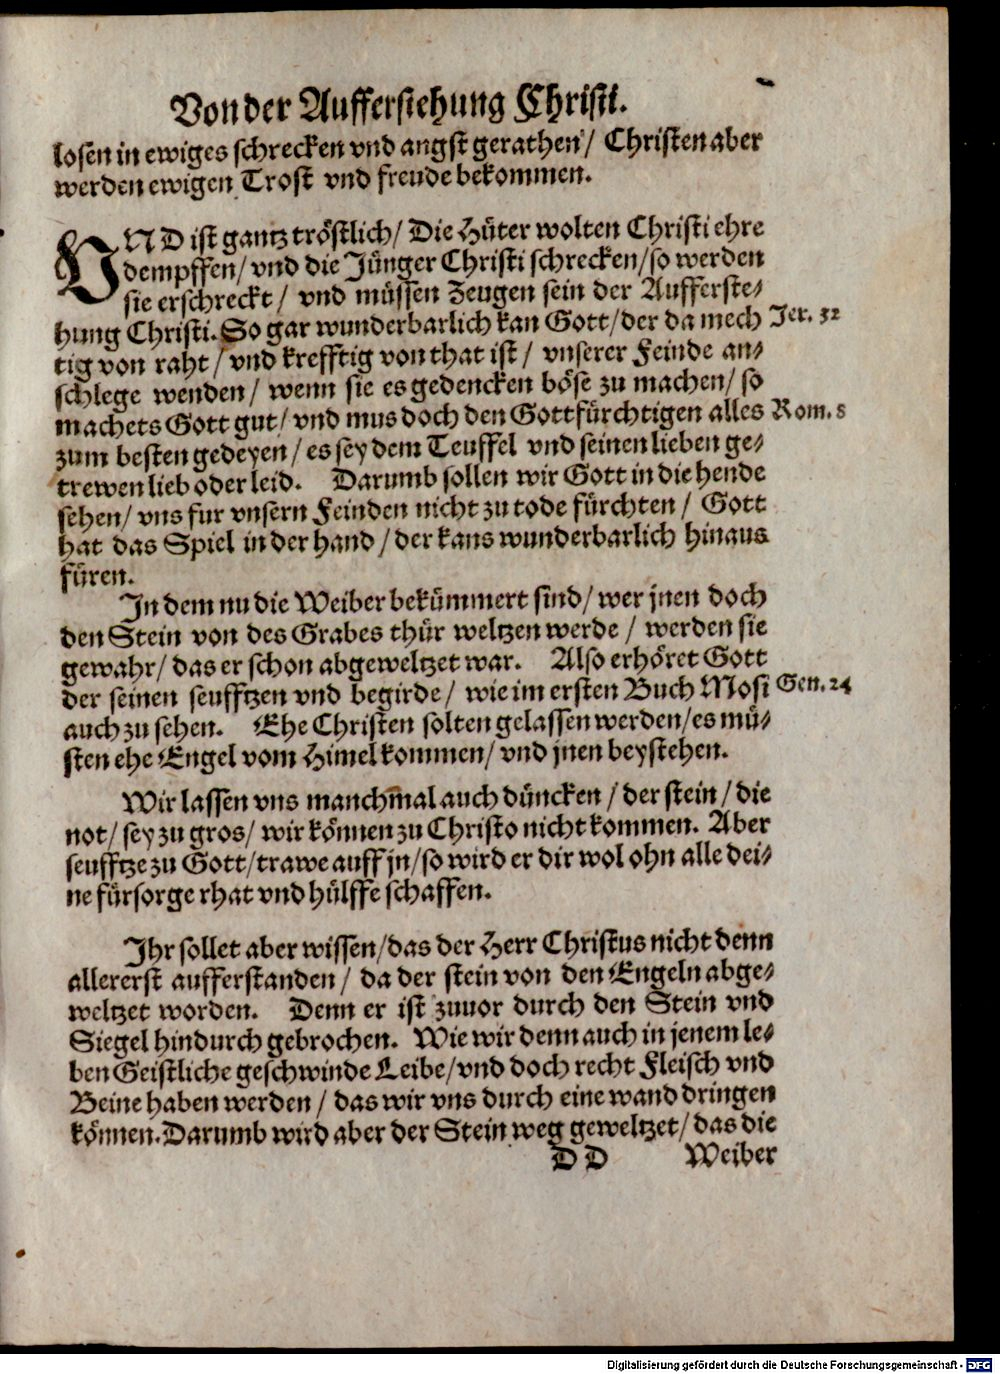 Von der Aufferstehung Christi.
losen in ewiges schrecken vnd angst gerathen / Christen aber
werden ewigen Trost vnd freude bekommen.
VND ist gantz tröstlich / Die Hüter wolten Christi ehre
dempffen / vnd die Jünger Christi schrecken / so werden
sie erschreckt / vnd müssen Zeugen sein der Aufferste-
hung Christi. So gar wunderbarlich kan Gott / der da mech Jer. 32
tig von raht / vnd krefftig von that ist / vnserer Feinde an-
schlege wenden / wenn sie es gedencken böse zu machen / so
machets Gott gut / vnd mus doch den Gottfürchtigen alles Rom. 8
zum besten gedeyen / es sey dem Teuffel vnd seinen lieben ge-
trewen lieb oder leid. Darumb sollen wir Gott in die hende
sehen / vns fur vnsern Feinden nicht zu tode fürchten / Gott
hat das Spiel in der hand / der kans wunderbarlich hinaus
füren.
In dem nu die Weiber bekümmert sind / wer jnen doch
den Stein von des Grabes thür weltzen werde / werden sie
gewahr / das er schon abgeweltzet war. Also erhöret Gott
der seinen seufftzen vnd begirde / wie im ersten Buch Mosi Gen. 24
auch zu sehen. Ehe Christen solten gelassen werden / es mü-
sten ehe Engel vom Himel kommen / vnd jnen beystehen.
Wir lassen vns manchm̄al auch düncken / der stein / die
not / sey zu gros / wir können zu Christo nicht kommen. Aber
seufftze zu Gott / trawe auff jn / so wird er dir wol ohn alle dei-
ne fürsorge rhat vnd hülffe schaffen.
Ihr sollet aber wissen / das der Herr Christus nicht denn
allererst aufferstanden / da der stein von den Engeln abge-
weltzet worden. Denn er ist zuuor durch den Stein vnd
Siegel hindurch gebrochen. Wie wir denn auch in jenem le-
ben Geistliche geschwinde Leibe / vnd doch recht Fleisch vnd
Beine haben werden / das wir vns durch eine wand dringen
können. Darumb wird aber der Stein weg geweltzet / das die
D D Weiber
Digitalisierung gefördert durch die Deutsche Forschungsgemeinschaft - DFG